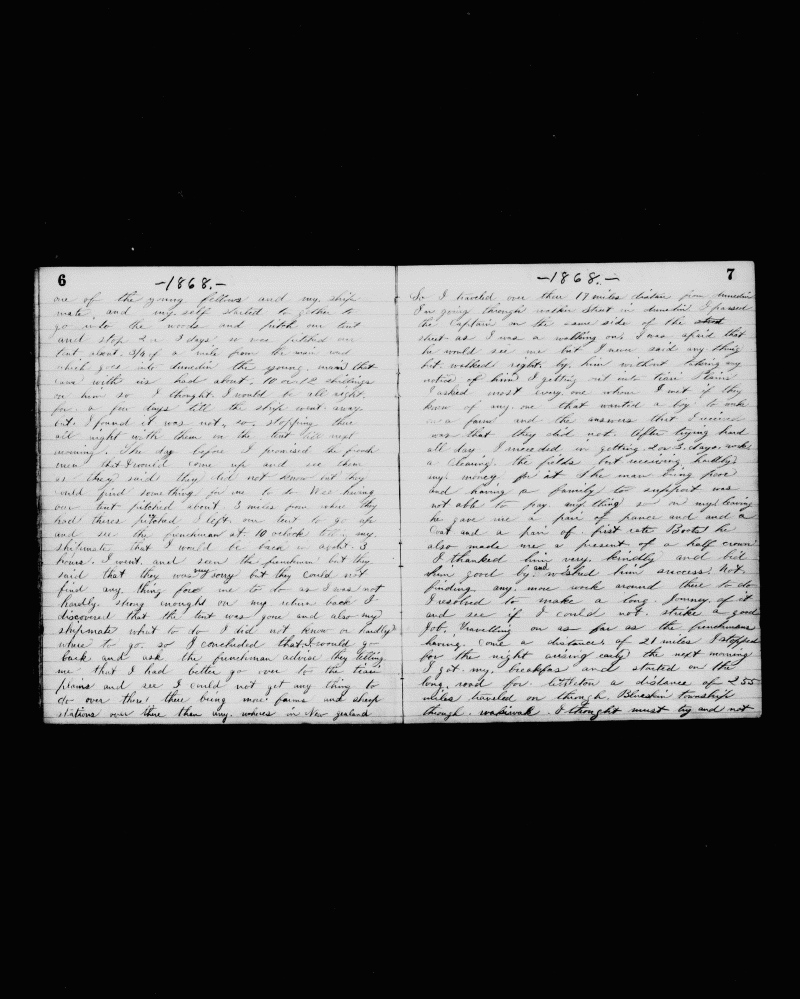 6
-1868.-
one of the young fellows and my ship
mate and my self started to gether to
go into the woods and pitch our tent
and stop 2 or 3 days so we pitched our
tent about 3/4 of a mile from the main road
which goes into dunedin the young man that
came with us had about 10 or 12 shillings
on him so I thought I would be all right
for a few days till the ship went away
but I found it was not so. stopping there
all night with them in the tent till next
morning. The day before I promised the french
men that I would come up and see them
as they said they did not know but they
could find something for me to do We having
our tent pitched about 3 miles from where they
had theirs pitched I left our tent to go up
and see the frenchman at 10 oclock telling my
shipmate that I would be back in about 3
hours. I went and seen the frenchman but they
said that they was very sorry but they could not
find any thing fore me to do as I was not
hardly strong enought on my return back I
discovered that the tent was gone and also my
shipmate what to do I did not know or hardly
where to go. so I concluded that I would go
back and ask the frenchman advise they telling
me that I had better go over to the tieri
plains and see I could not get any thing to
do over there there being more farms and sheep
stations over there than any wheres in New zealand
7
-1868.-
So I traveled over there 17 miles distan from dunedin
I'm going through walker Street in dunedin I passed
the Captain on the same side of the
street as I was a walking on. I was afraid that
he would see me but I never said any thing
but walked right by him without taking any
notice of him I getting out into tieri plains
I asked most every one whom I met if they
knew of any one that wanted a boy to work
on a farm and the answers that I received
was that they did not. After trying hard
all day I succeeded in getting 2 or 3 days work
a Cleaning the fields but receiving hardly
my money for it the man being poor
and having a family to support was
not able to pay any thing so on my leaving
he gave me a pair of pance and and a
Coat and a pair of first rate Boots he
also made me a present of a half crown
I thanked him very kindly and bid
him good by and wished him success. Not
finding any more work around there to do
I resolved to make a long Journey of it
and see if I could not strike a good
Job. Travelling on as far as the frenchmans
having come a distance of 21 miles I stopped
for the night arising early the next morning
I got my breakfas and started on the
long road for littleton a distance of 255
miles traveled on though Blueskin township
through . I thought must try and not